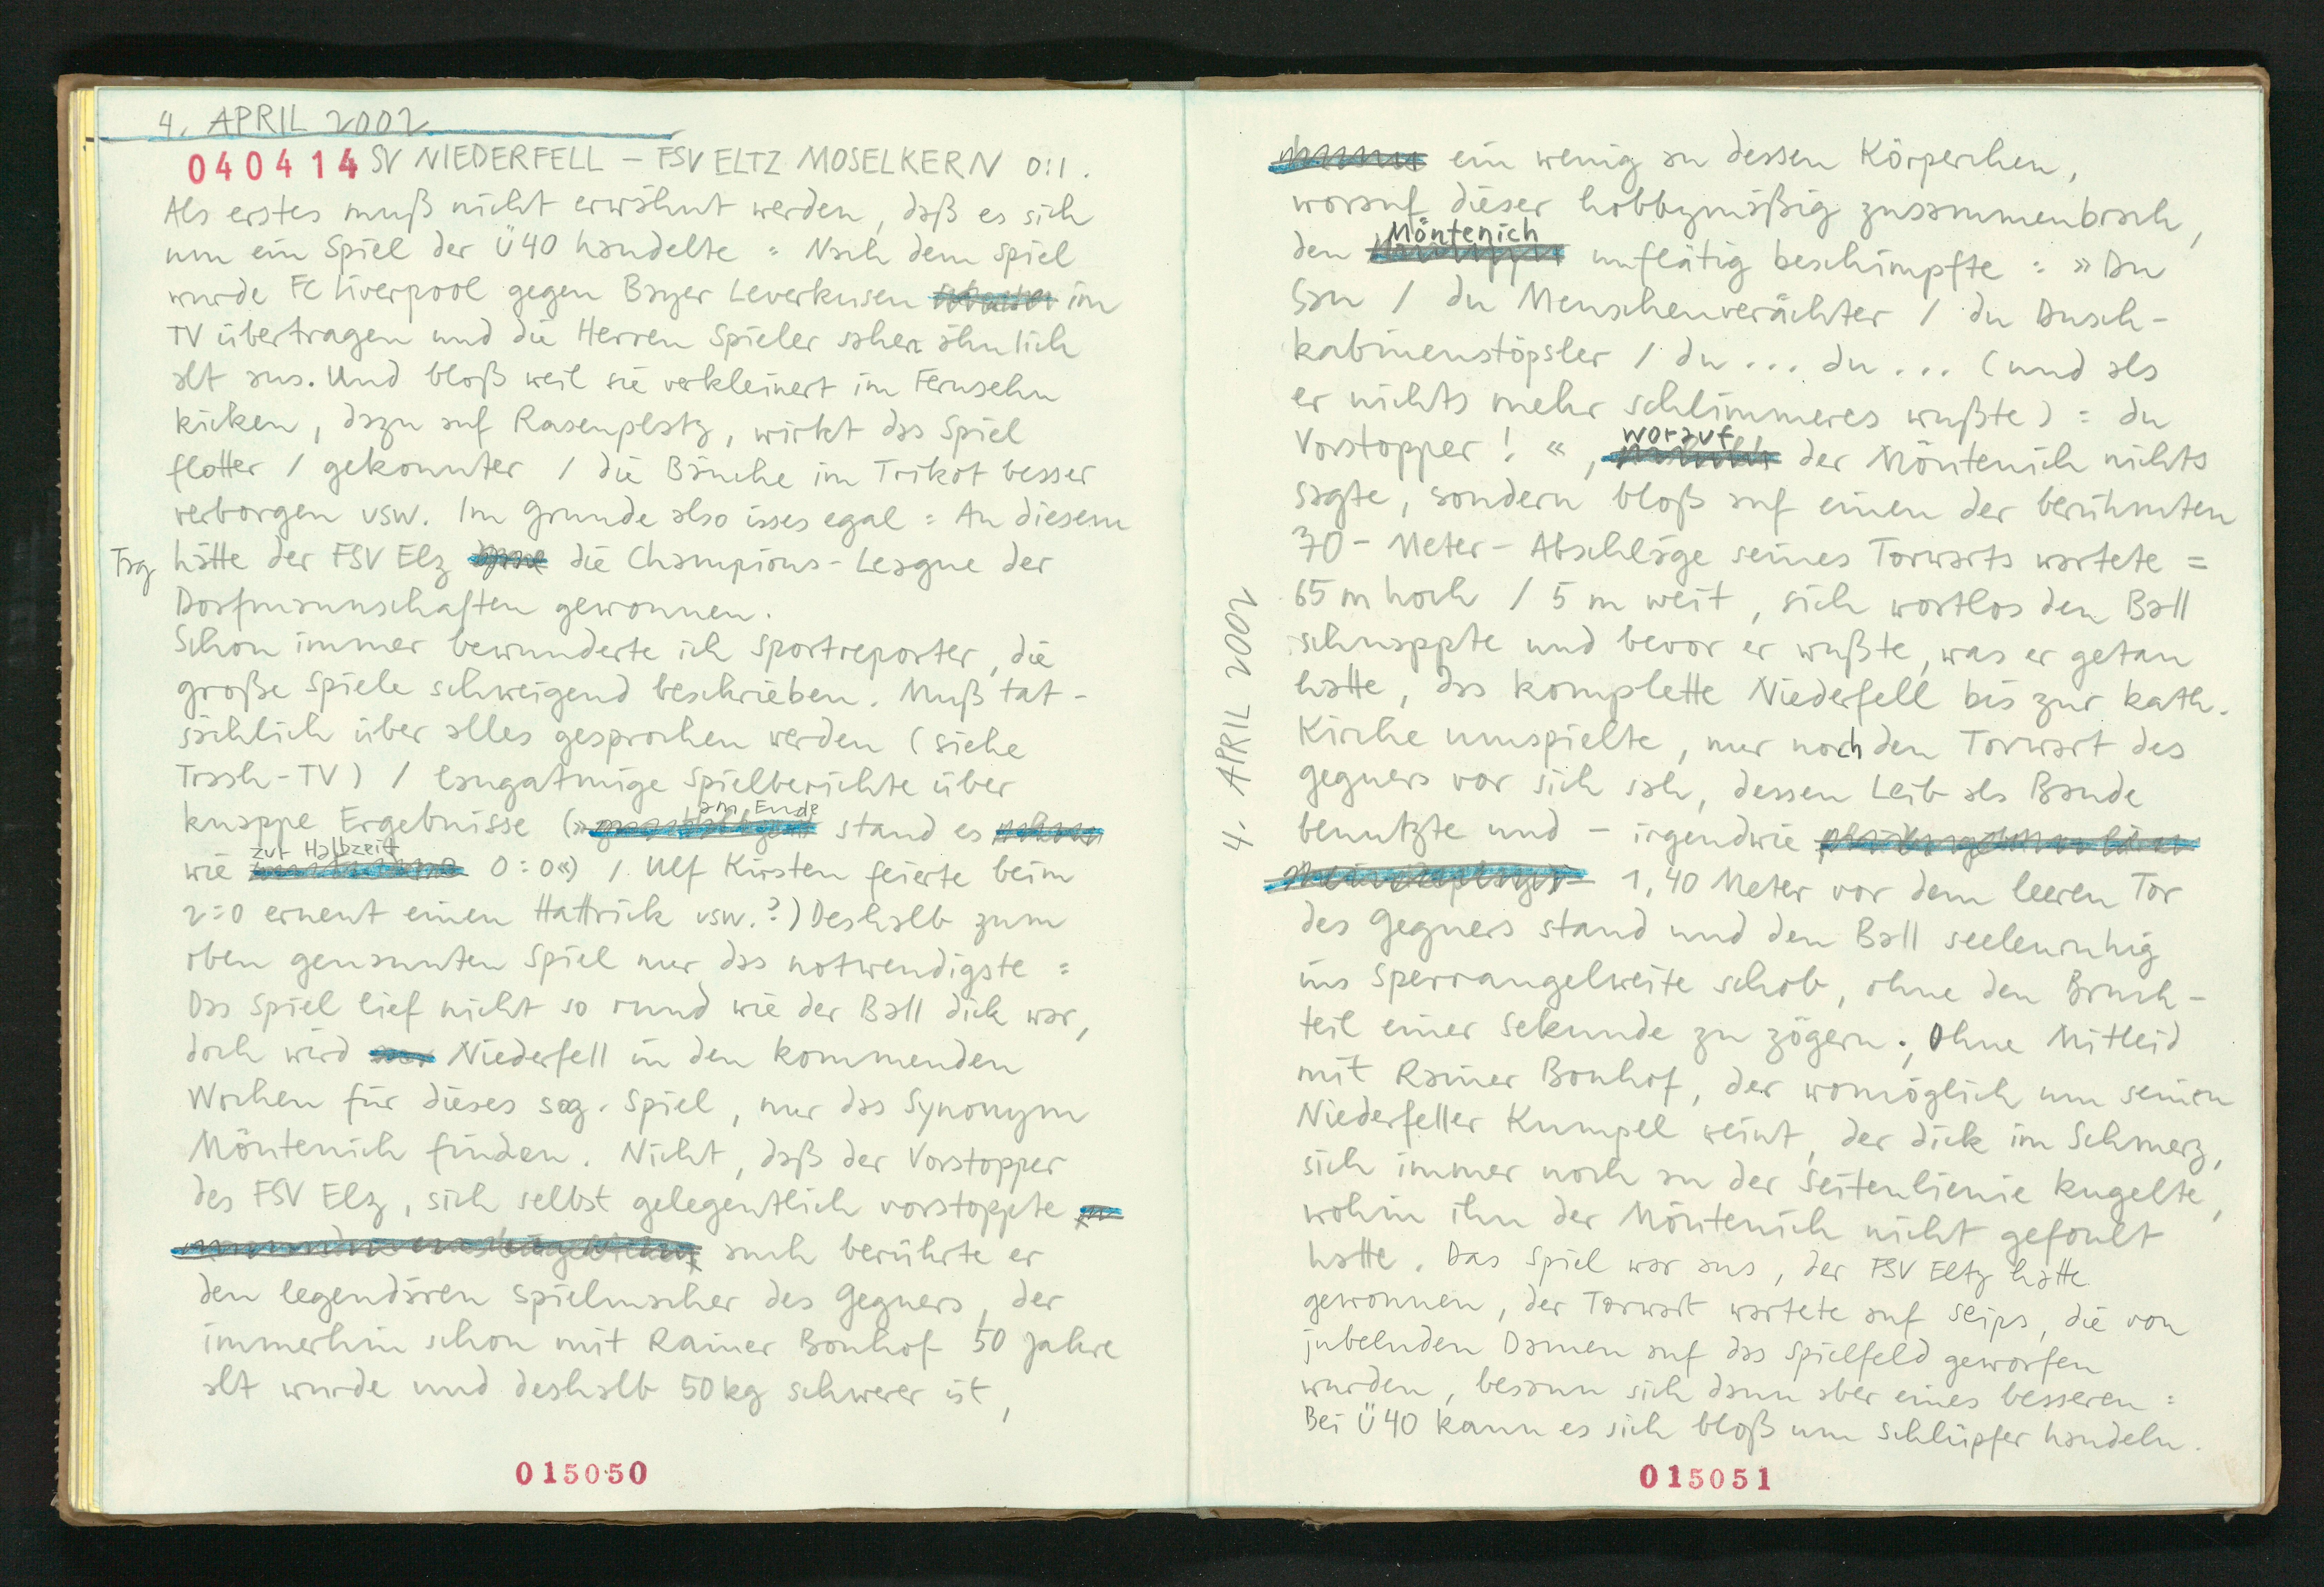 4. APRIL 2002
040414 SV NIEDERFELL – FSV ELTZ MOSELKERN 0:1.
Als erstes muß nicht erwähnt werden, daß es sich
um ein Spiel der Ü40 handelte = Nach dem Spiel
wurde FC Liverpool gegen Bayer Leverkusen im
TV übertragen und die Herren Spieler sahen ähnlich
alt aus. Und bloß weil sie verkleinert im Fernsehn
kicken, dazu auf Rasenplatz, wirkt das Spiel
flotter / gekonnter / die Bäuche im Trikot besser
verborgen usw. Im Grunde also isses egal = An diesem
Tag hätte der FSV Elz die Champions-League der
Dorfmannschaften gewonnen.
Schon immer bewunderte ich Sportreporter, die
große Spiele schweigend beschrieben. Muß tat-
sächlich über alles gesprochen werden (siehe
Trash-TV) / langatmige Spielberichte über
knappe Ergebnisse (» am Ende stand es
wie zur Halbzeit 0:0«) / Ulf Kirsten feierte beim
2:0 erneut einen Hattrick usw.?) Deshalb zum
oben genannten Spiel nur das notwendigste =
Das Spiel lief nicht so rund wie der Ball dick war,
doch wird Niederfell in den kommenden
Wochen für dieses sog. Spiel, nur das Synonym
Möntenich finden. Nicht, daß der Vorstopper
des FSV Elz, sich selbst gelegentlich vorstoppte
auch berührte er
den legendären Spielmacher des Gegners, der
immerhin schon mit Rainer Bonhof 50 Jahre
alt wurde und deshalb 50kg schwerer ist,
015050
4. APRIL 2002
ein wenig an dessen Körperchen,
worauf dieser hobbymäßig zusammenbrach,
den Möntenich unflätig beschimpfte = »Du
Sau / du Menschenverächter / du Dusch-
kabinenstöpsler / du ... du ... (und als
er nichts mehr schlimmeres wußte) = du
Vorstopper! «, worauf der Möntenich nichts
sagte, sondern bloß auf einen der berühmten
70-Meter-Abschläge seines Torwarts wartete =
65 m hoch / 5 m weit, sich wortlos den Ball
schnappte und bevor er wußte, was er getan
hatte, das komplette Niederfell bis zur kath.
Kirche umspielte, nur noch den Torwart des
Gegners vor sich sah, dessen Leib als Bande
benutzte und – irgendwie
– 1,40 Meter vor dem leeren Tor
des Gegners stand und den Ball seelenruhig
ins Sperrangelweite schob, ohne den Bruch-
teil einer Sekunde zu zögern., Ohne Mitleid
mit Rainer Bonhof, der womöglich um seinen
Niederfeller Kumpel weint, der dick im Schmerz,
sich immer noch an der Seitenlienie kugelte,
wohin ihn der Möntenich nicht gefoult
hatte. Das Spiel war aus, der FSV Eltz hatte
gewonnen, der Torwart wartete auf Slips, die von
jubelnden Damen auf das Spielfeld geworfen
wurden, besann sich dann aber eines besseren =
Bei Ü40 kann es sich bloß um Schlüpfer handeln.
015051